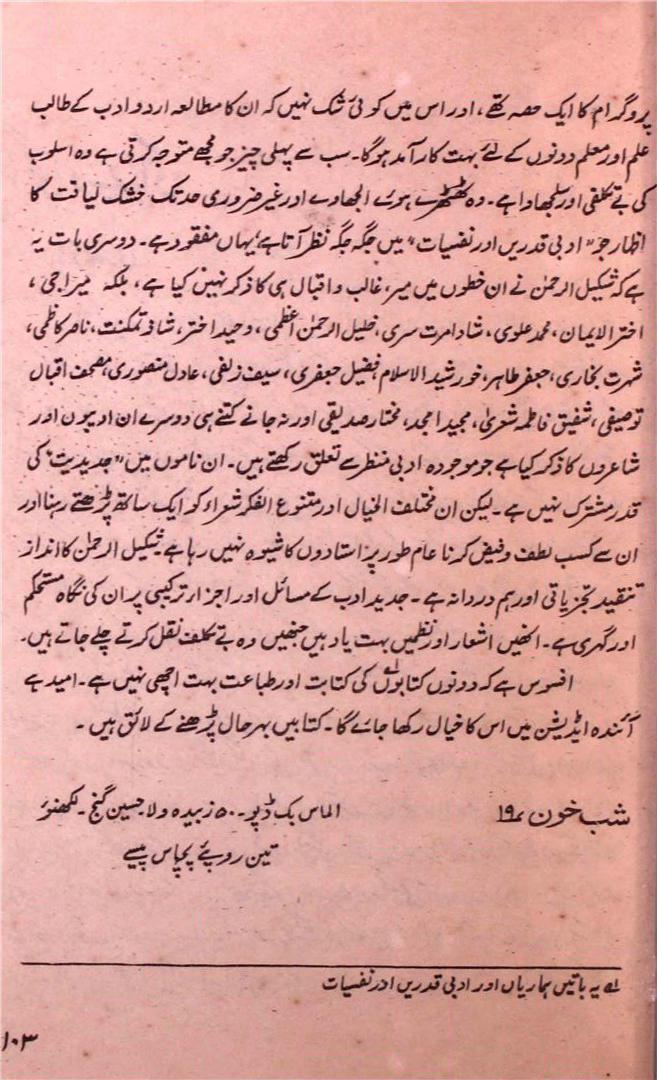 پروگرام کا ایک حصہ تھے، اور اس میں کوئی شک نہیں کہ ان کا مطالعہ اردو ادب کے طالب
علم اور معلم دونوں کے لئے بہت کارآمد ہوگا۔ سب سے پہلی چیز جو مجھے متوجہ کرتی ہے وہ اسلوب
کی بے تکلفی اور سلجھاوا ہے۔ وہ ٹھٹھرے ہوئے الجھاوے اور غیر ضروری حد تک خشک لیاقت کا
اظہار جو "ادبی قدریں اور نفسیات" میں جگہ جگہ نظر آتا ہے یہاں مفقود ہے۔ دوسری بات یہ
ہے کہ شکیل الرحمٰن نے ان خطوں میں میر، غالب و اقبال ہی کا ذکر نہیں کیا ہے، بلکہ میراجی،
اختر الایمان، محمد علوی، شاد امرت سری، خلیل الرحمٰن اعظمی، وحید اختر، شاذ تمکنت، ناصر کاظمی،
شہرت بخاری، جعفر طاہر، خورشید الاسلام، فضیل جعفری، سیف زلفی، عادل منصوری، مصحف اقبال
توصیفی، شفیق فاطمہ شعریٰ، مجید امجد، مختار صدیقی اور نہ جانے کتنے ہی دوسرے ان ادیبوں اور
شاعروں کا ذکر کیا ہے جو موجودہ ادبی منظر سے تعلق رکھتے ہیں۔ ان ناموں میں "جدیدیت" کی
قدر مشترک نہیں ہے۔ لیکن ان مختلف الخیال اور متنوع الفکر شعراء کو ایک ساتھ پڑھتے رہنا اور
ان سے کسب لطف و فیض کرنا عام طور پر استادوں کا شیوہ نہیں رہا ہے۔ شکیل الرحمٰن کا انداز
تنقید تجزیاتی اور ہم دردانہ ہے۔ جدید ادب کے مسائل اور اجزاء ترکیبی پر ان کی نگاہ مستحکم
اور گہری ہے۔ انھیں اشعار اور نظمیں بہت یاد ہیں جنھیں وہ بے تکلف نقل کرتے چلے جاتے ہیں۔
افسوس ہے کہ دونوں کتابوں لہ کی کتابت اور طباعت بہت اچھی نہیں ہے۔ امید ہے
آئندہ ایڈیشن میں اس کا خیال رکھا جائے گا۔ کتابیں بہرحال پڑھنے کے لائق ہیں۔
شب خون ۱۹ء
الماس بک ڈپو۔ ۵۰ زبیدہ ولا، حسین گنج۔ لکھنؤ
تین روپئے پچاس پیسے
لہ یہ باتیں ہماریاں اور ادبی قدریں اور نفسیات
۱۰۳